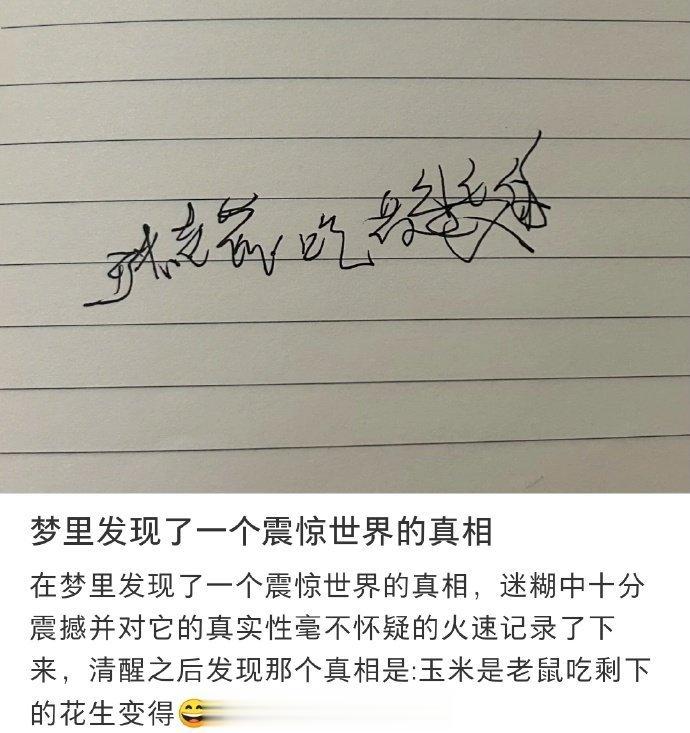 吃
梦里发现了一个震惊世界的真相
在梦里发现了一个震惊世界的真相，迷糊中十分
震撼并对它的真实性毫不怀疑的火速记录了下
来，清醒之后发现那个真相是:玉米是老鼠吃剩下
的花生变得😄